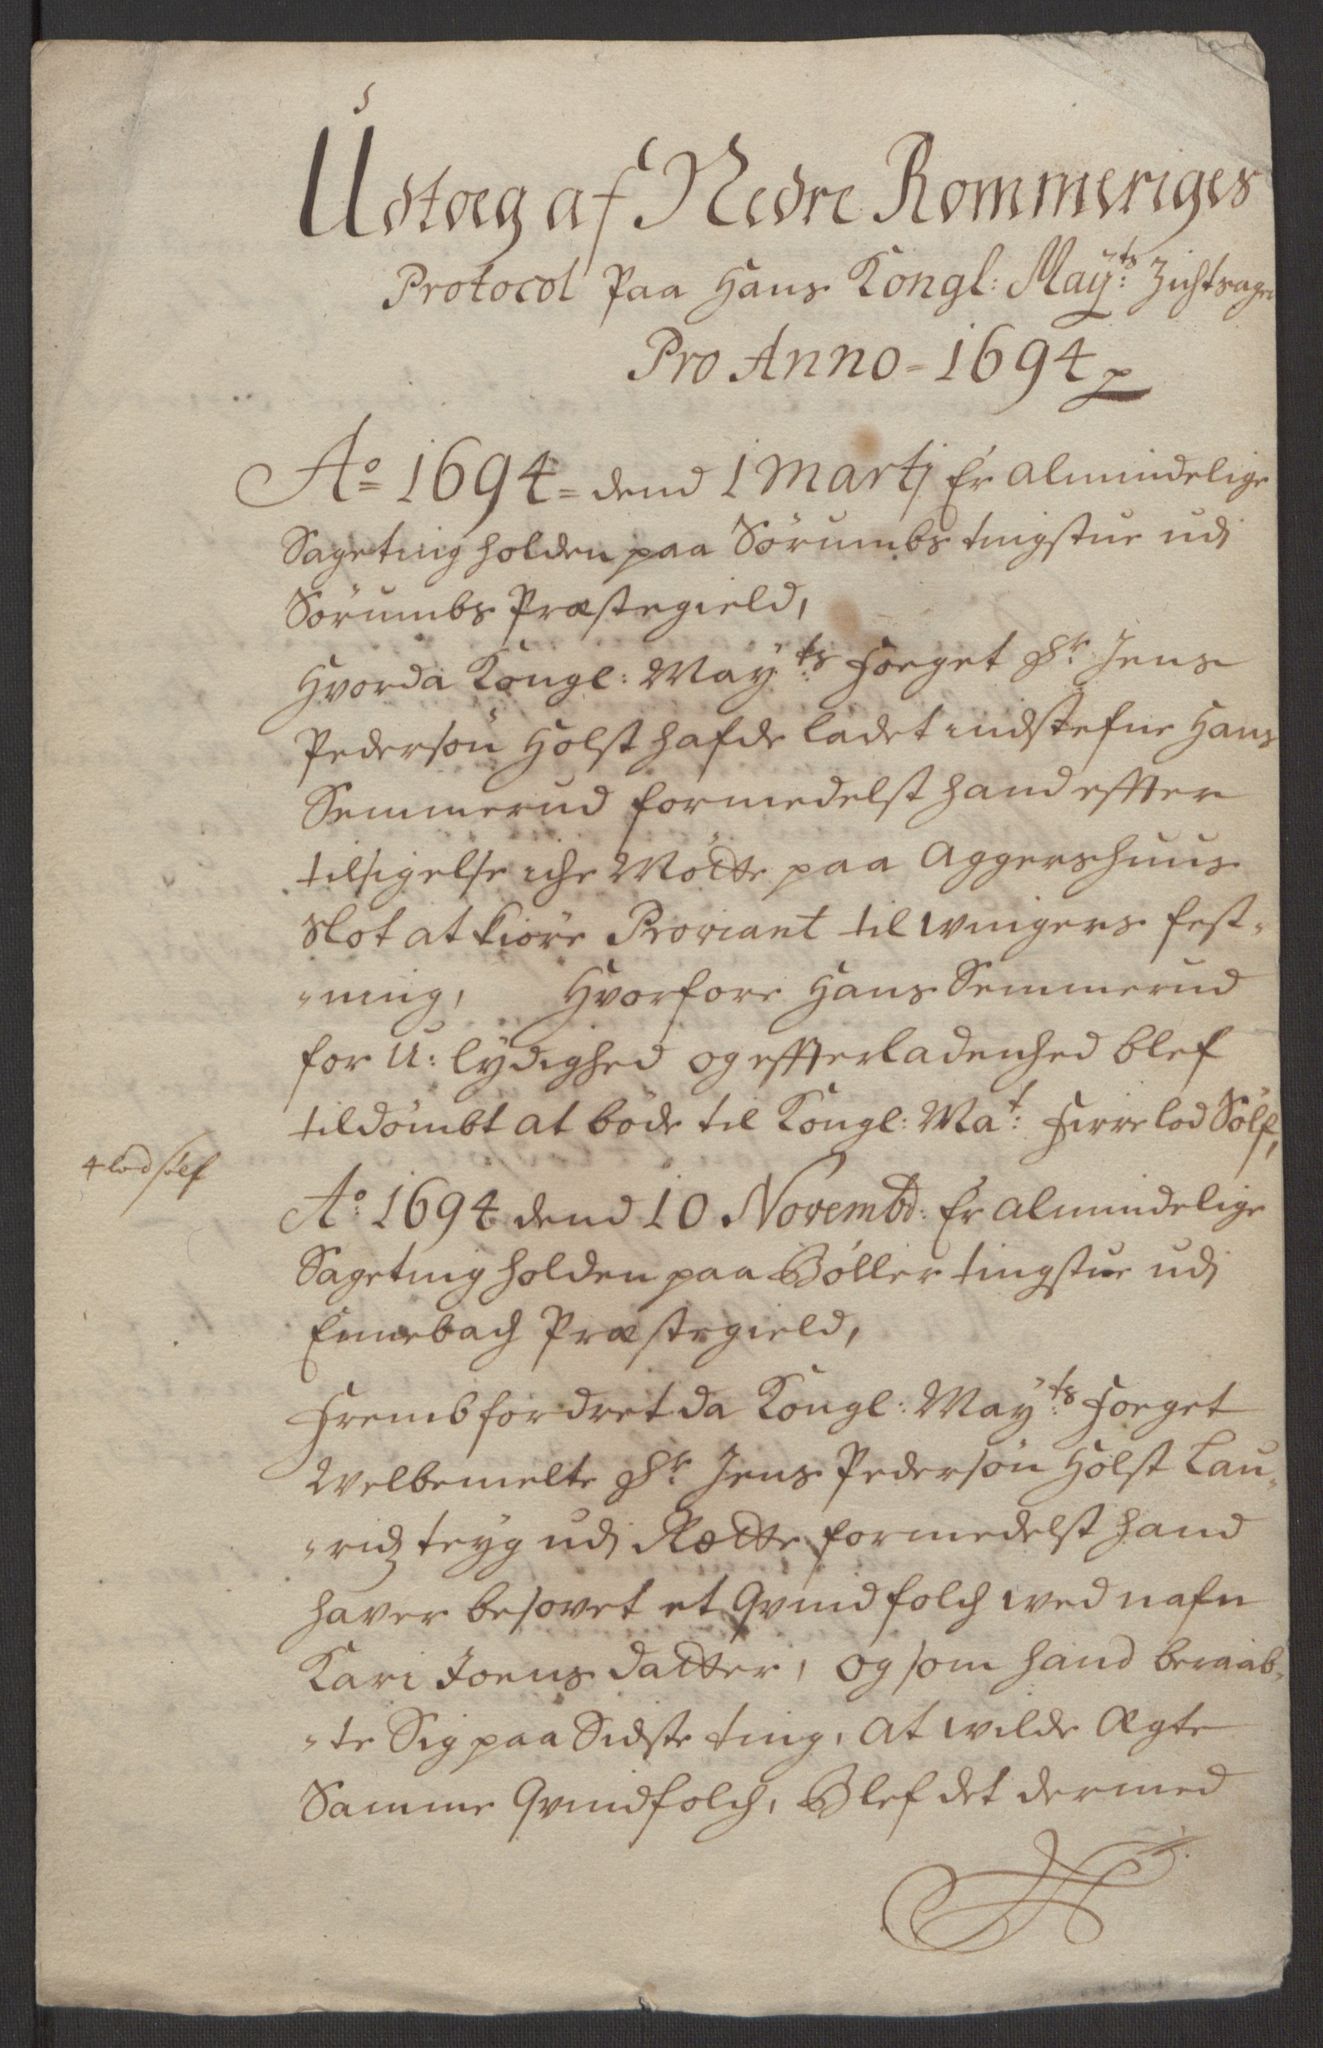 Udtoeg af Nedre Rommeriges
Protocol Paa Hans Kongl: May:ts Zichtsager
Pro Anno = 1694 p
Ao = 1694 = dend 1 Martj Er almindelige
Sageting holden paa Sörumbs tingstue udj
Sörumbs Præstegield,
Hvor da Kongl: May:ts Foeget Sr: Jens
Pedersön Holst hafde ladet indstefne Hans
Semmerud formedelst hand effter
tilsigelse iche Mötte paa Aggershuus
Slot at kiöre Proviant til wingers fest-
-ning, Hvorfore Hans Semmerud
for U: lydighed og effterladenhed blef
tildömbt at böde til Kongl: Mat: Firre lod Sölf,
4 lod sölf
Ao 1694 dend 10 Novembd: Er almindelige
Sageting holden paa Böller tingstue udj
Ennebach Præstegield,
Frembfordret da Kongl: May:ts Foeget
Welbemelte Sr: Jens Pedersön Holst Lau-
-ridz teyg udj Rætte formedelst hand
haver besovet et Qvindfolch wed nafn
Kari Joens datter, og som hand beraab-
-te Sig paa Sidste ting, at wilde Ægte
Samme Qvindfolch, Blef det dermed